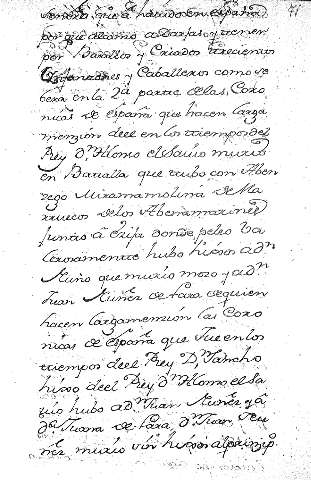 que á havido en españa
por que
por Vasallos y Criados trecientos
y Cavalleros como se
vera en la 2ª parte de las Coro
nicas de españa que hacen larga
mencion de el en los tiempos del
Rey Dⁿ Alonso el Savio murio
en Batalla que tubo con Aben
Miramamolin de Ma
rruecos de los
junto a donde peleo Va
lerosamente hubo hixos a Dⁿ
Nuño que murio mozo y a Dⁿ
Juan Nuñez de Lara de quien
hacen larga mencion las Coro
nicas de españa que fue en los
tiempos de el Rey Dⁿ Sancho
hixo de el Rey Dⁿ Alonso el Sa
vio hubo a Dⁿ Juan Nuñez y á
Dª Juana de Lara, Dⁿ Juan Nu
ñez murio sin hixos al